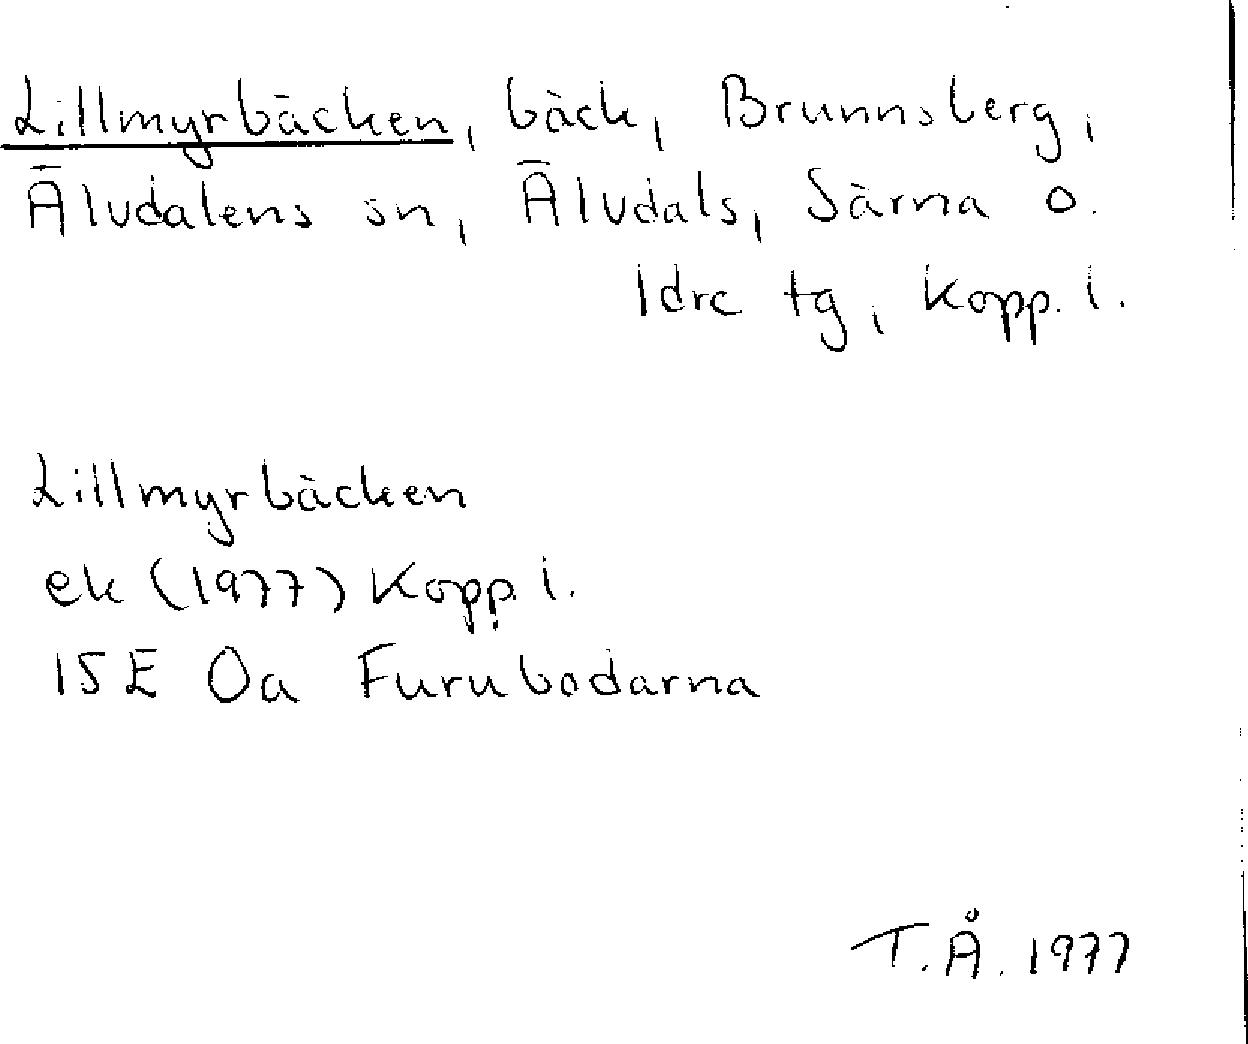 Lillmyrbäcken, bäck, Brunnsberg,
Älvdalens sn, Älvdals, Särna o.
Idre tg, Kopp. l.
Lillmyrbäcken
ek (1977) Kopp. l.
15E 0a Furubodarna
T.Å. 1977